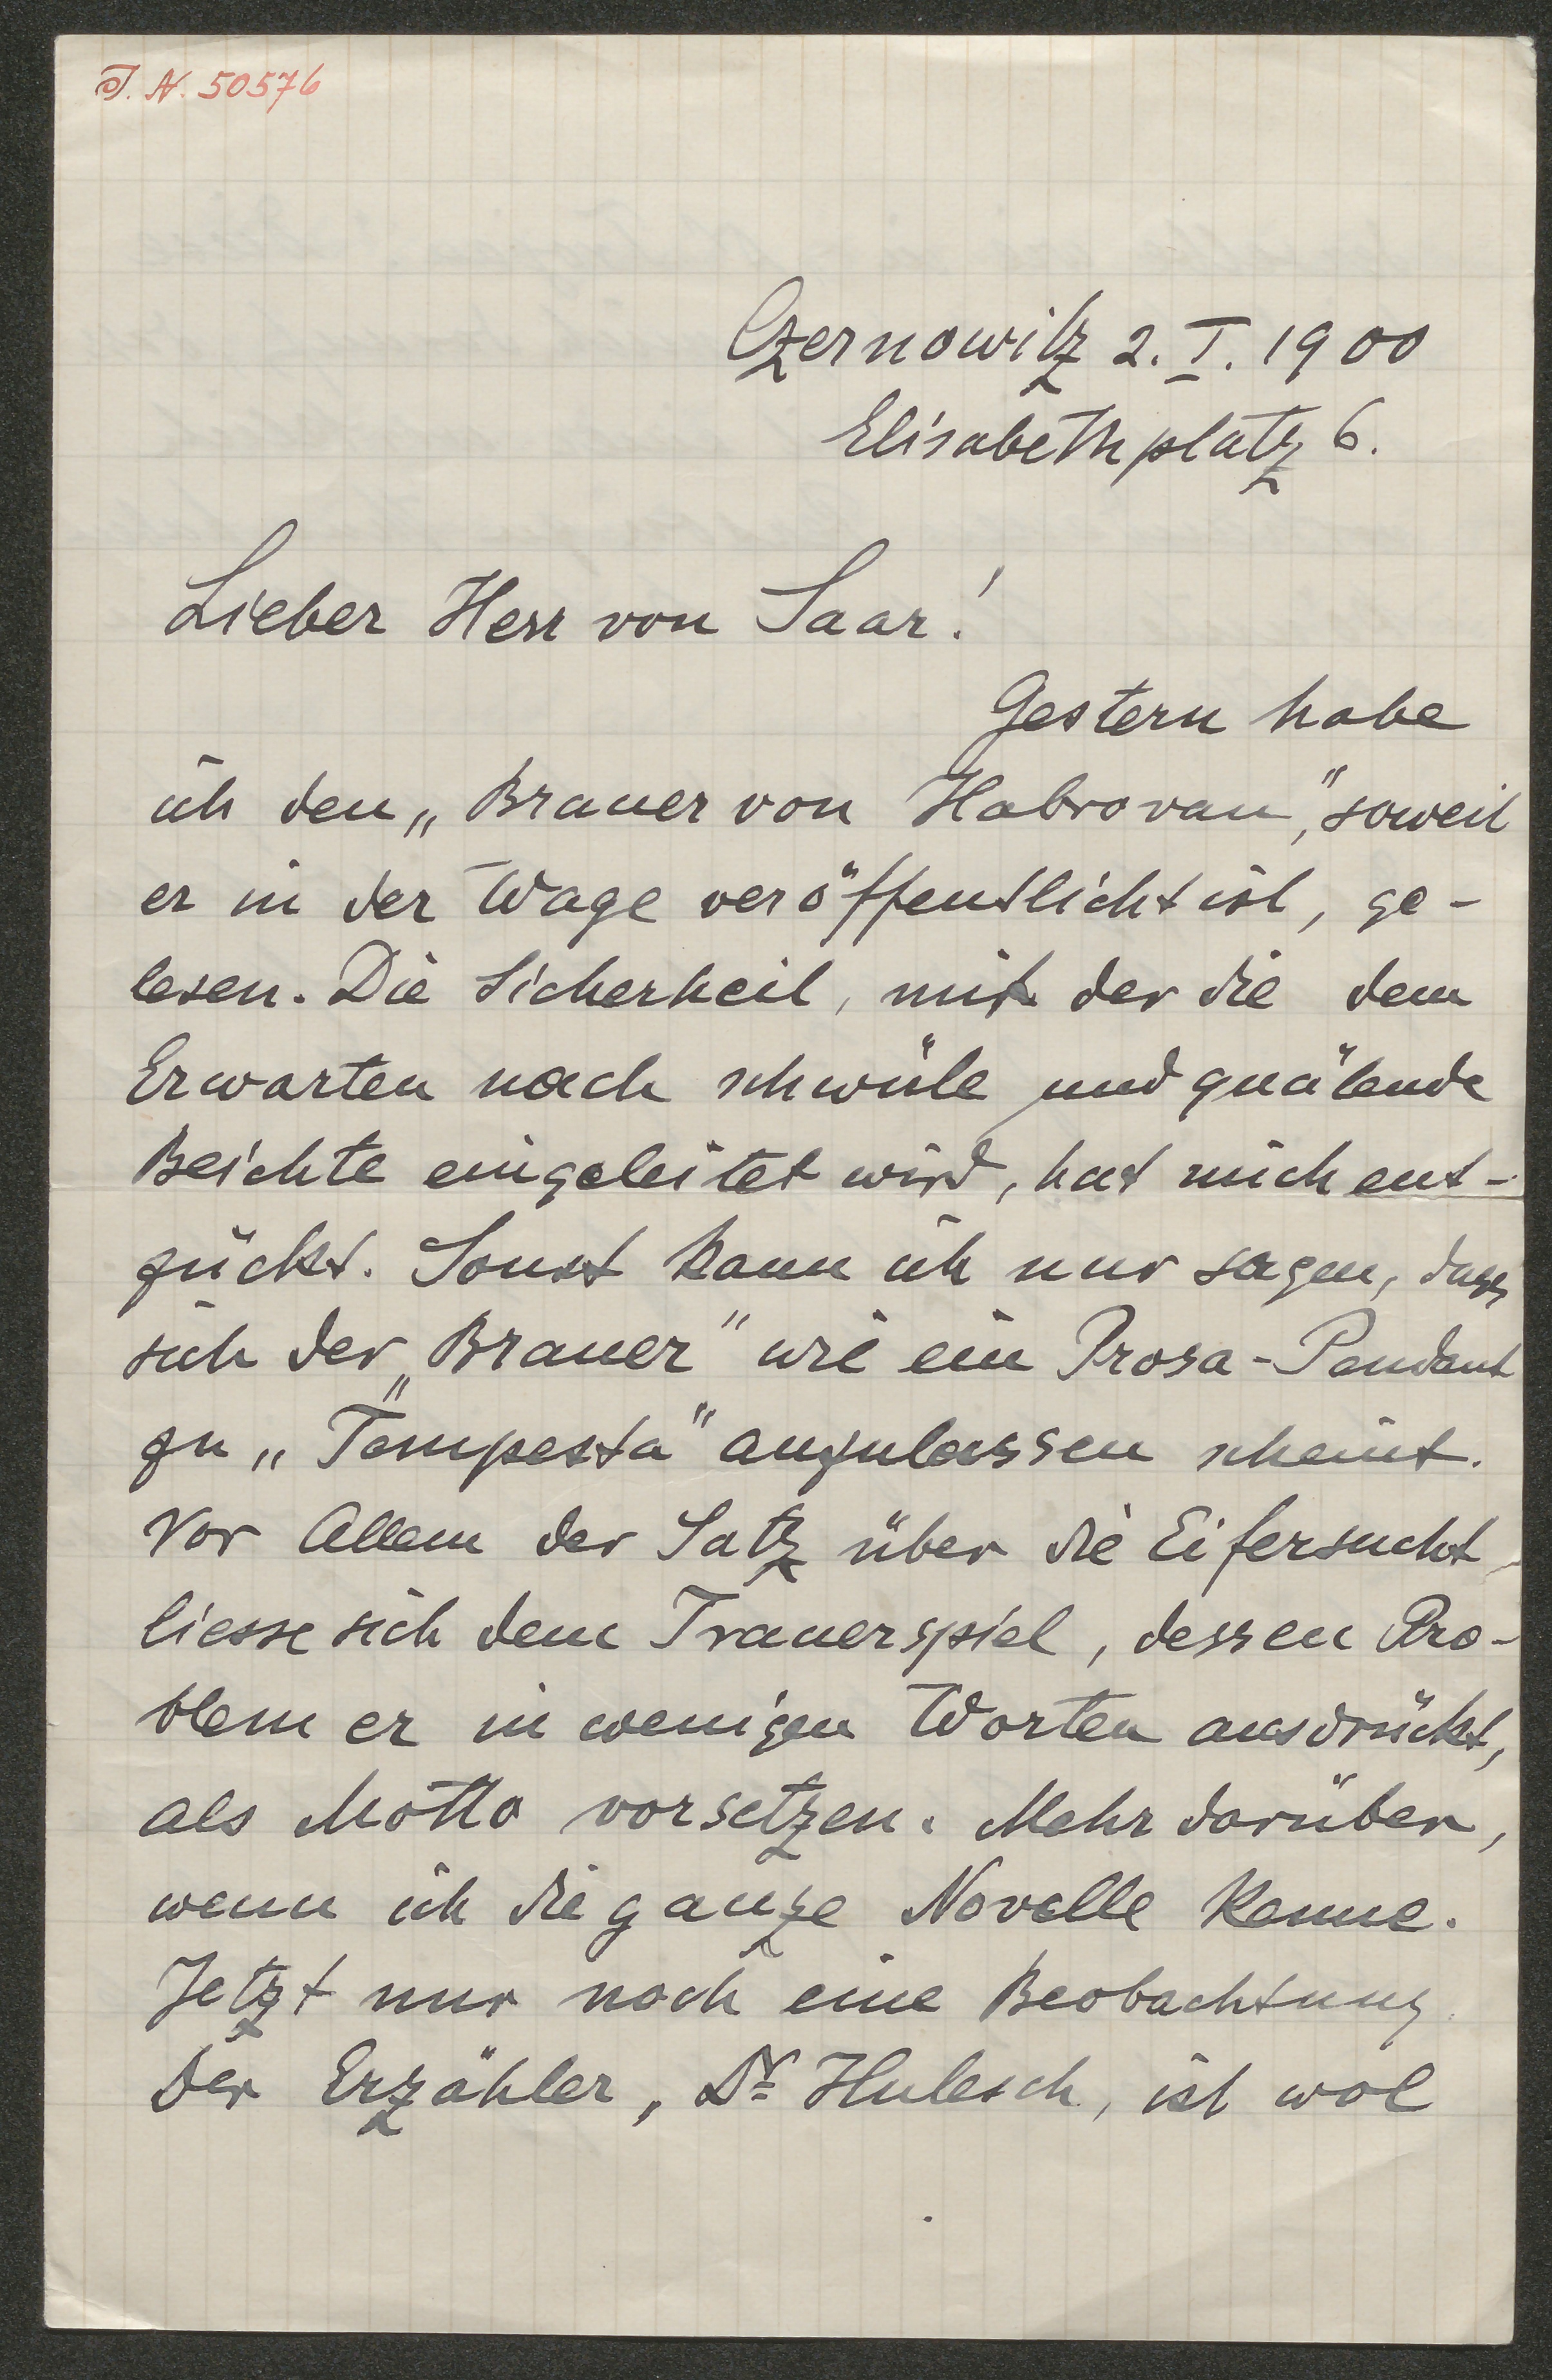 J. N. 50576
Czernowitz 2. I. 1900
Elisabethplatz 6.
Lieber Herr von Saar!
Gestern habe
ich den „Brauer von Habrovan", soweit
er in der Wage veröffentlicht ist, ge-
lesen. Die Sicherheit, mit der die dem
Erwarten nach schwüle und quälende
Beichte eingeleitet wird, hat mich ent-
zückt. Sonst kann ich nur sagen, dass
sich der „Brauer" wie ein Prosa-Pendant
zu „Tempesta" anzulassen scheint.
Vor Allem der Satz über die Eifersucht
liesse sich dem Trauerspiel, dessen Pro-
blem er in wenigen Worten ausdrückt,
als Motto vorsetzen. Mehr darüber,
wenn ich die ganze Novelle kenne.
Jetzt nur noch eine Beobachtung.
Der Erzähler, Dr Hulesch, ist wol